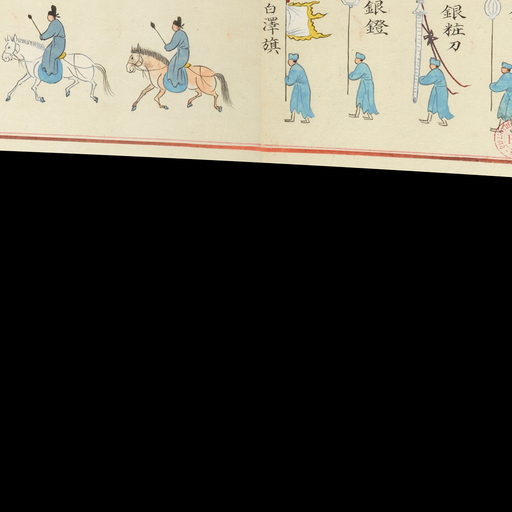 銀粧刀
銀鐙
白澤旗